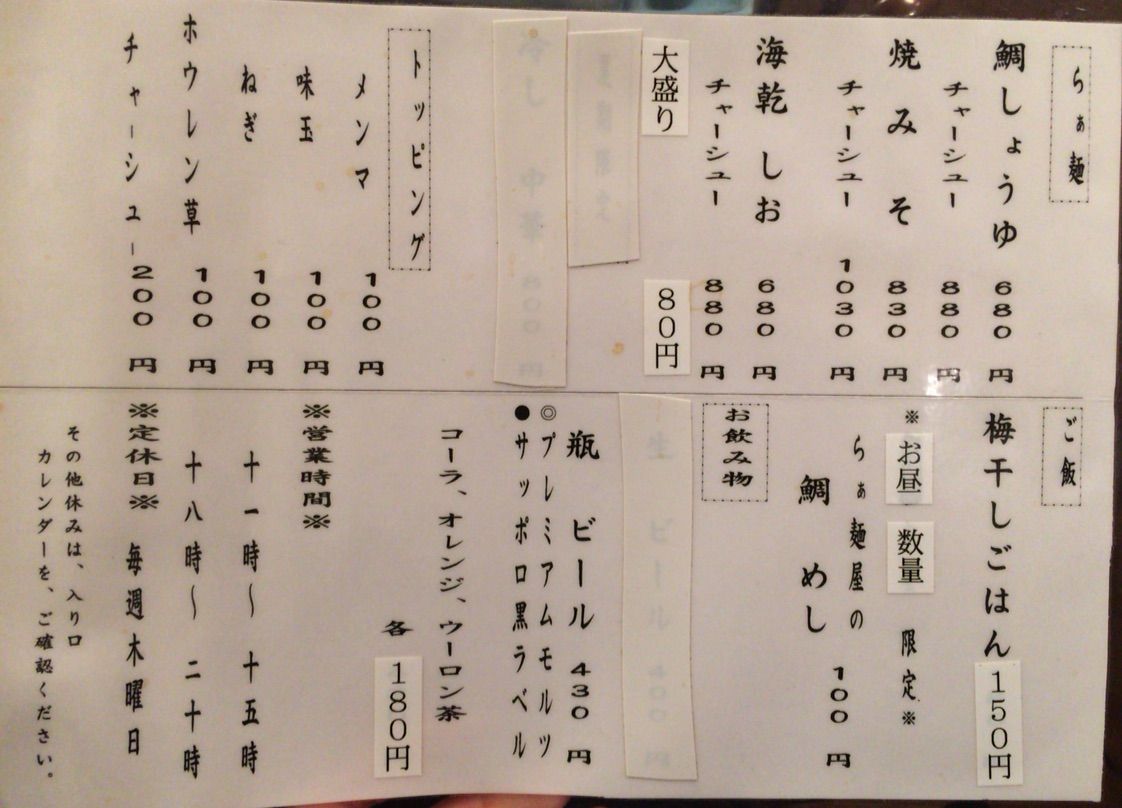 らぁ麺
鯛しょうゆ 680円
チャーシュー 880円
焼みそ 830円
チャーシュー 1030円
海乾しお 680円
チャーシュー 880円
大盛り 80円
夏期限定
冷し中華 800円
トッピング
メンマ 100円
味玉 100円
ねぎ 100円
ホウレン草 100円
チャーシュー 200円
ご飯
梅干しごはん 150円
※お昼 数量 限定※
らぁ麺屋の
鯛めし 100円
お飲み物
生ビール 400円
瓶ビール 430円
◎プレミアムモルツ
●サッポロ黒ラベル
コーラ、オレンジ、ウーロン茶
各 180円
※営業時間※
十一時〜十五時
十八時〜二十時
※定休日※ 毎週木曜日
その他休みは、入り口
カレンダーを、ご確認ください。